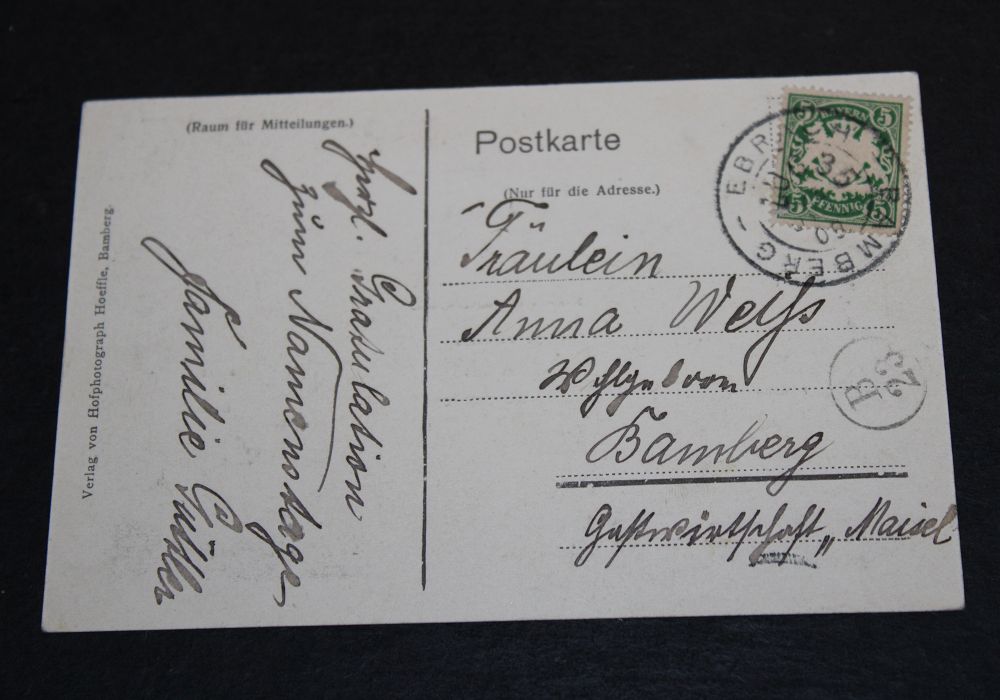 (Raum für Mitteilungen.)
Herzl. Gratulation
zum Namenstage
Familie
Verlag von Hofphotograph Hoeffle, Bamberg.
Postkarte
(Nur für die Adresse.)
Fräulein
Anna Welfs
Wohlgeboren
Bamberg
Gastwirtschaft „Maisel
BAYERN
5 5
5 PFENNIG 5
BAMBERG
B
23